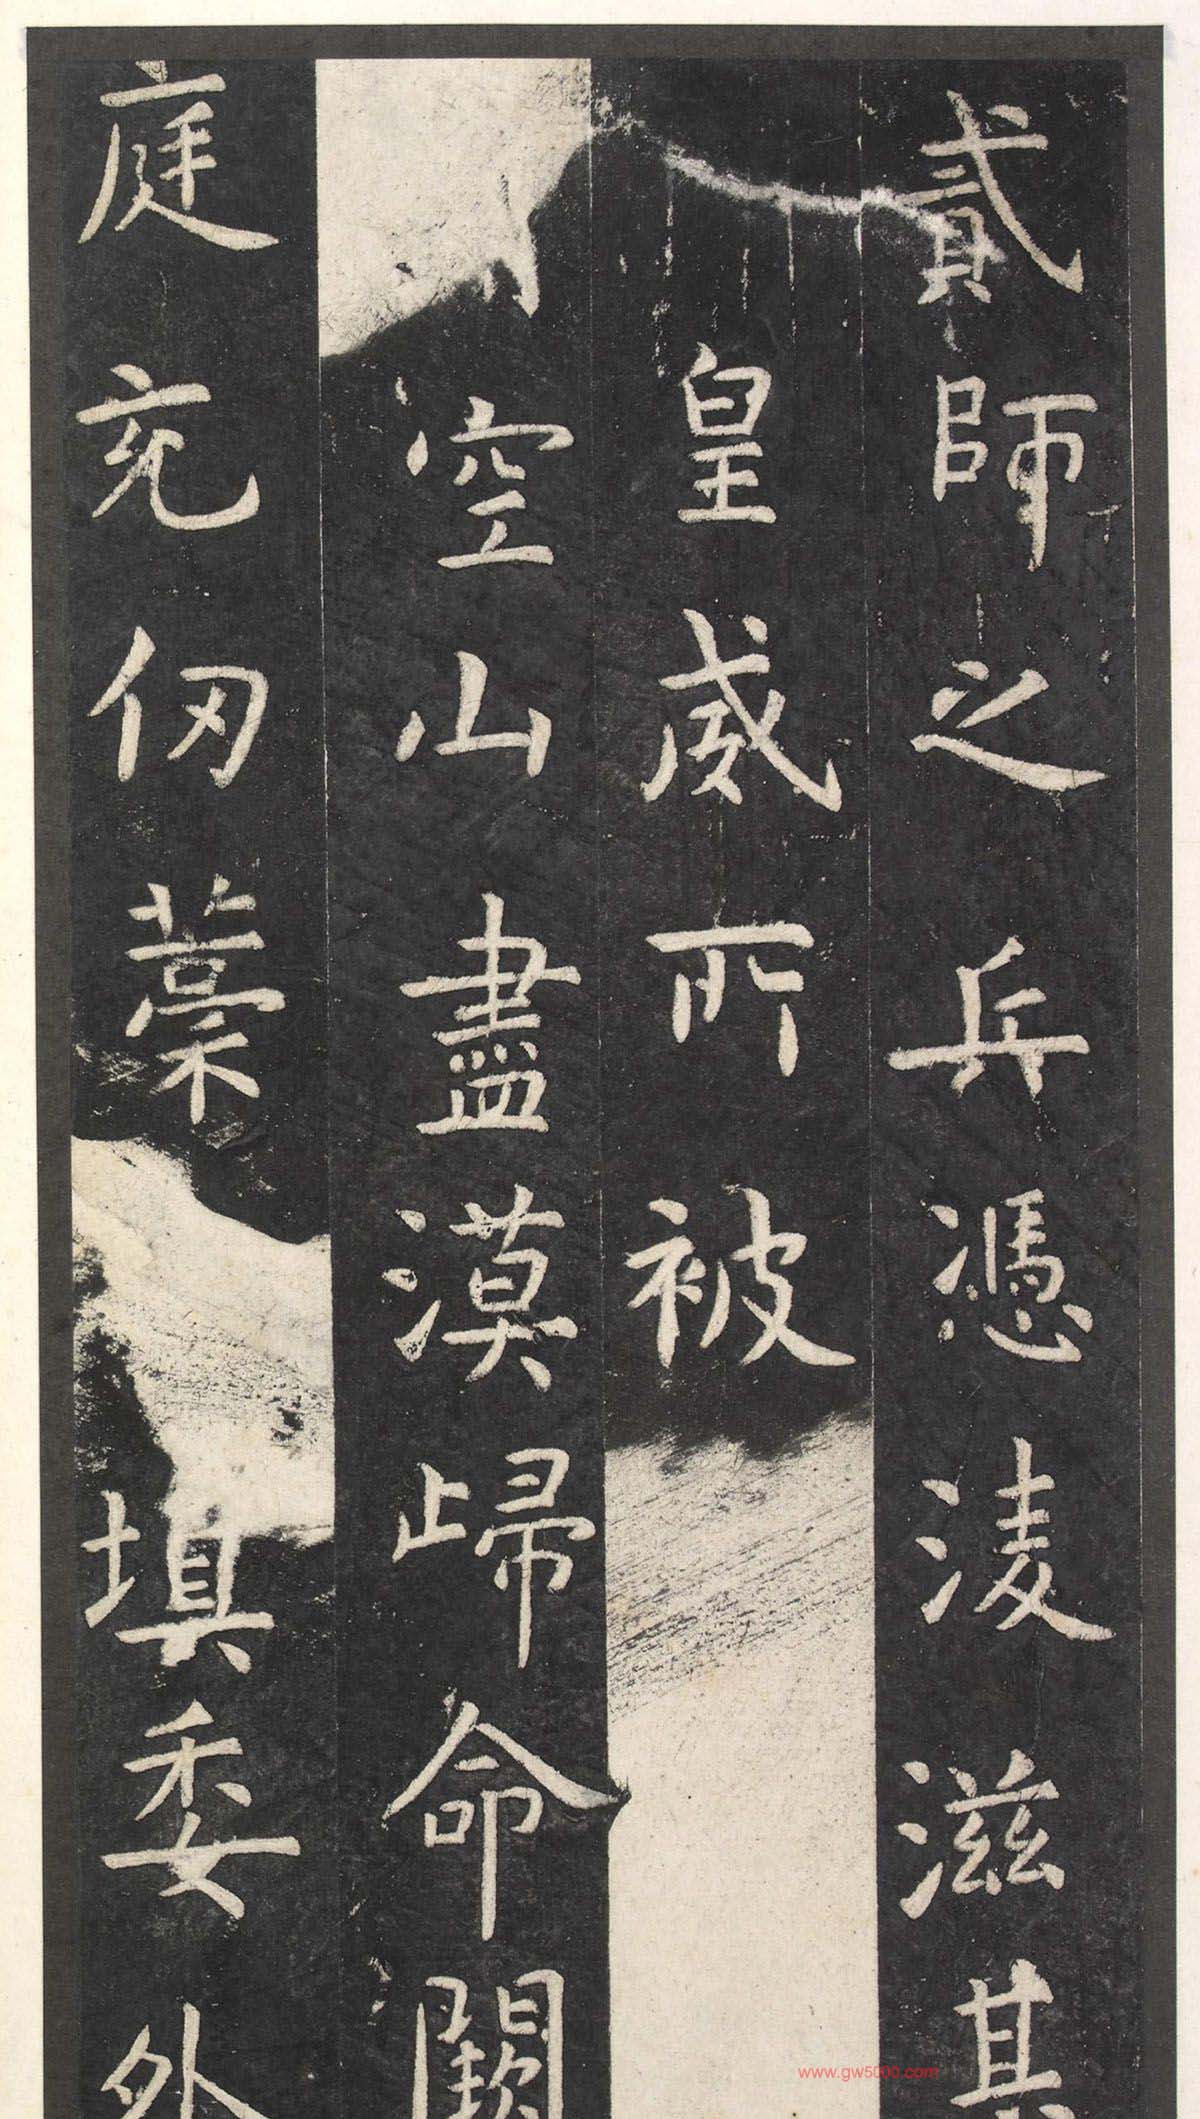 貳師之兵憑淩滋其
皇威所被
空山盡漠歸命闕
庭充仞藁填委外
www.gw5000.com